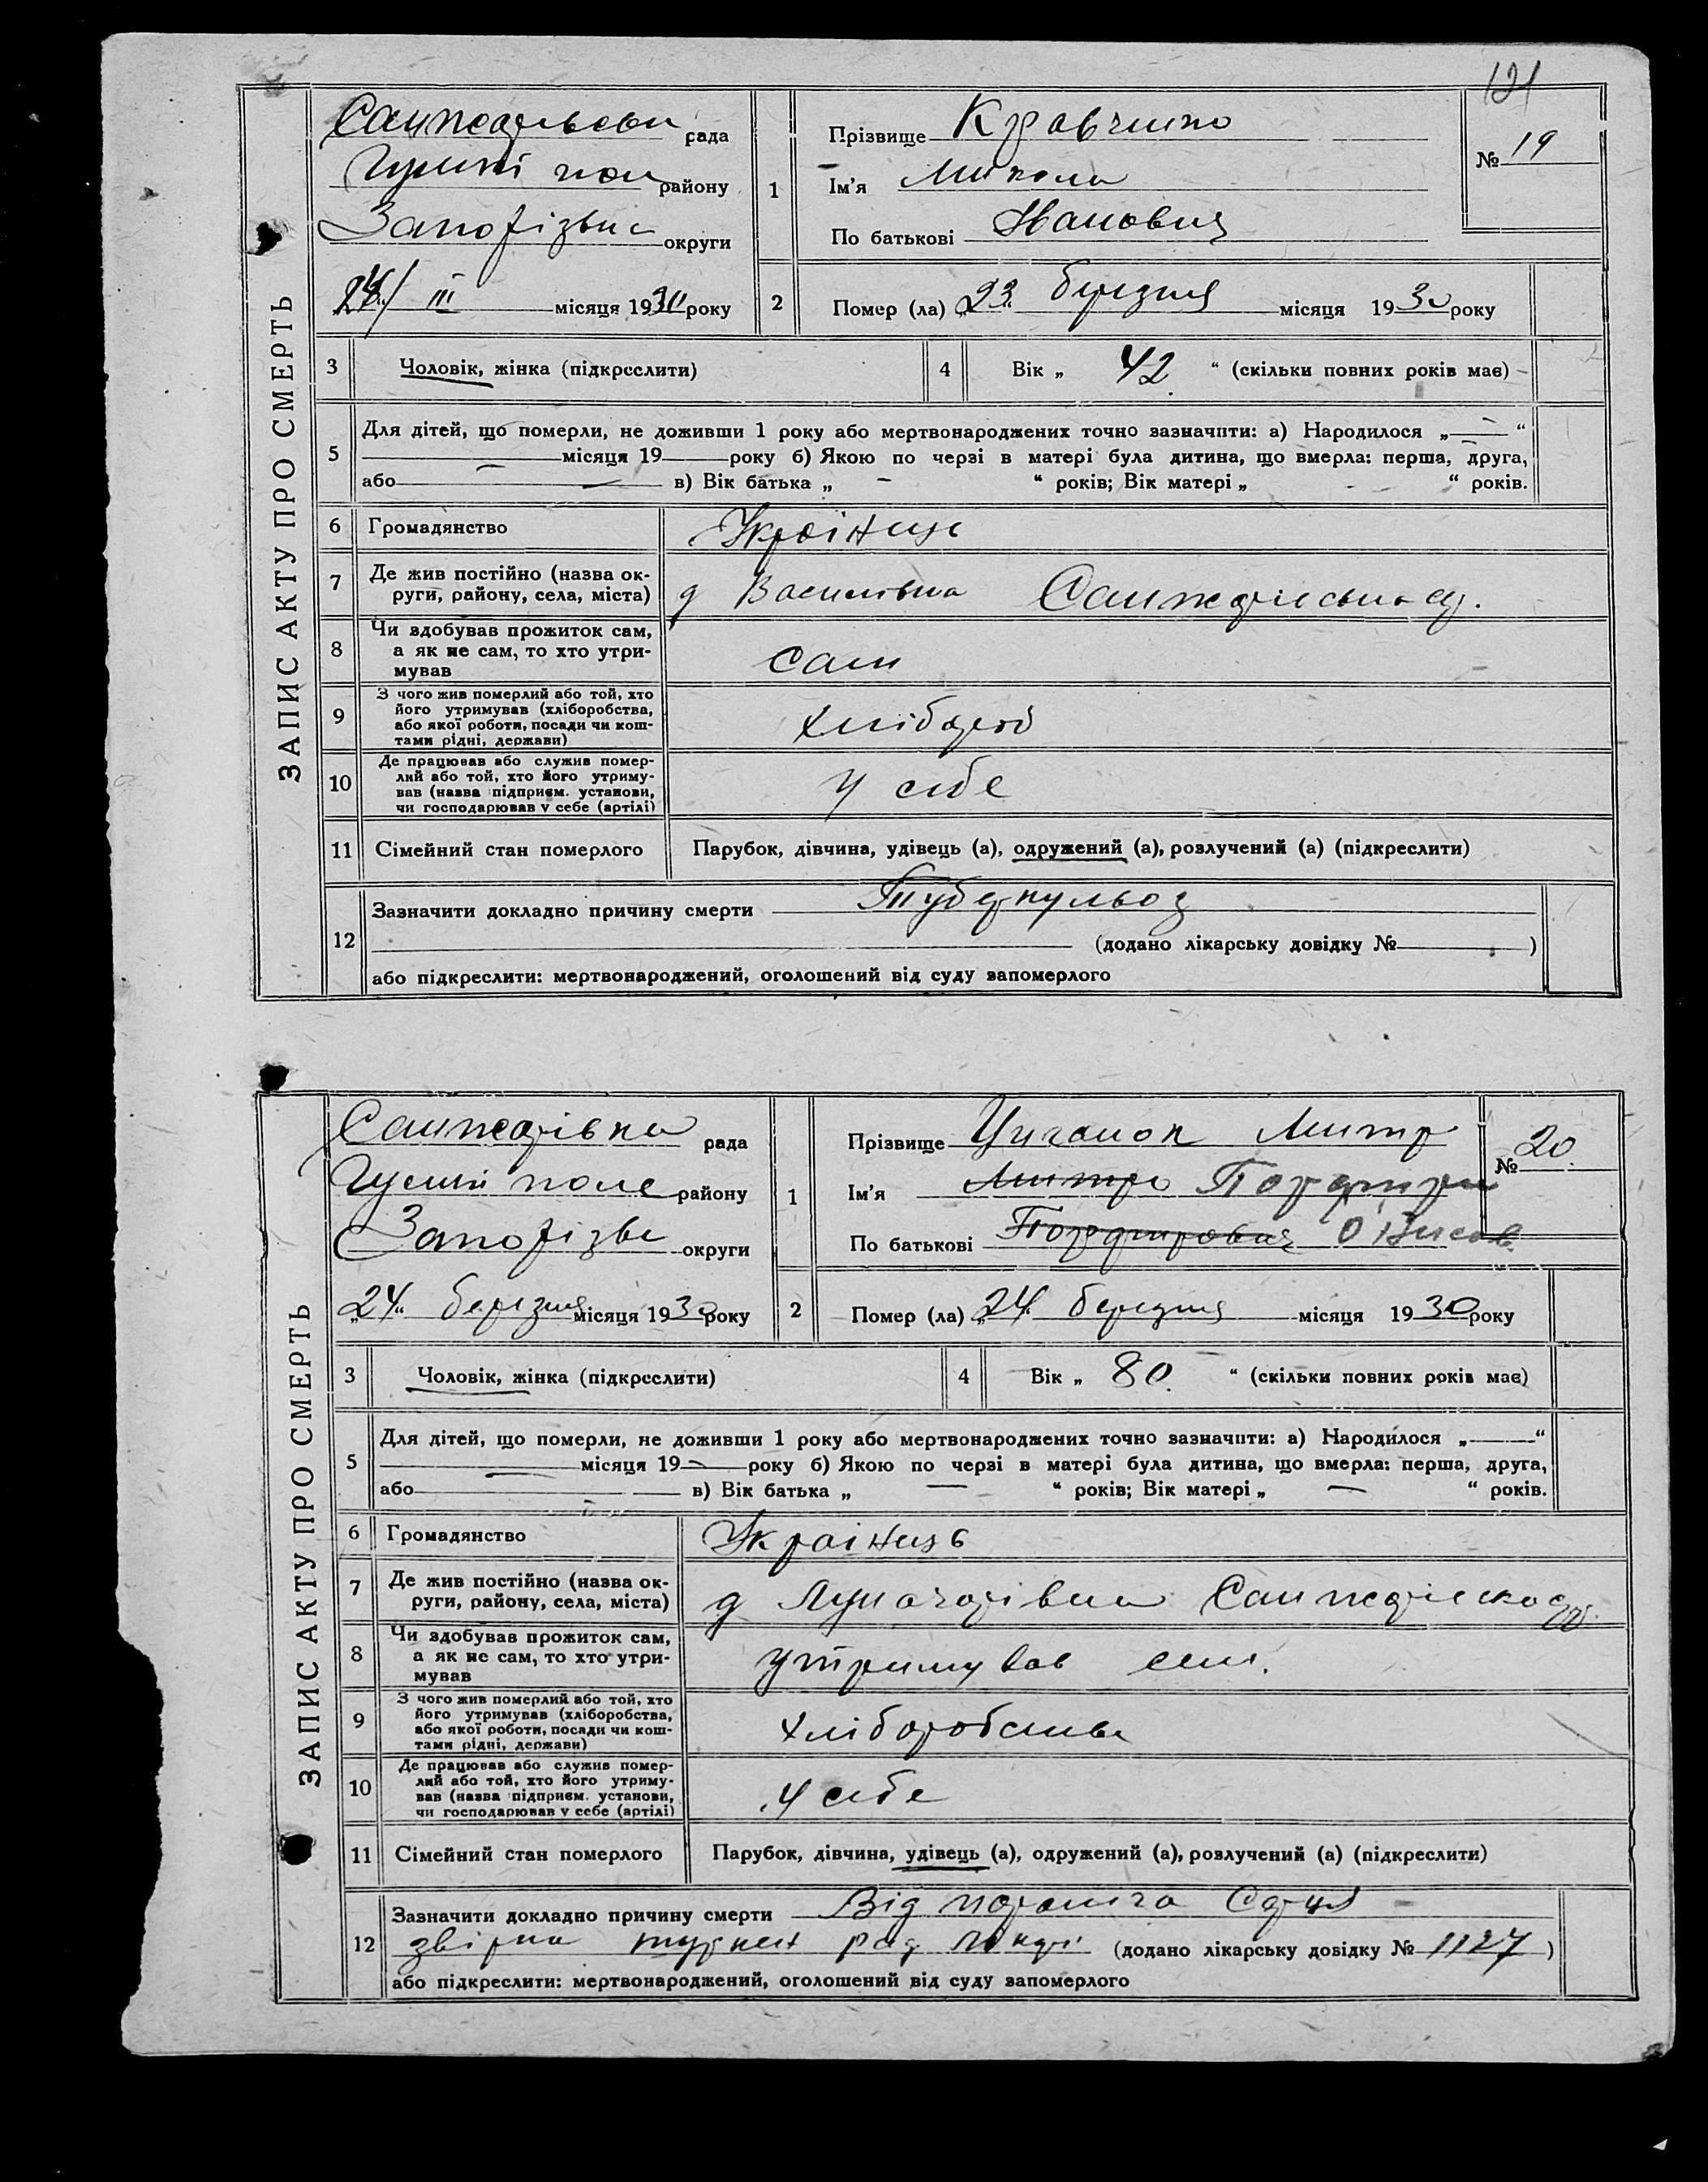 121
ЗАПИС АКТУ ПРО СМЕРТЬ
рада
району
округи
24/ III місяця 1930 року
1
Прізвище Кравченко
Ім'я Микола
По батькові Иванович
№ 19
2
Помер (ла) „23“ березня місяця 1930 року
3 Чоловік, жінка (підкреслити)
4 Вік „ 42 “ (скільки повних років має)
5 Для дітей, що померли, не доживши 1 року або мертвонароджених точно зазначити: а) Народилося „—“
— місяця 19 року б) Якою по черзі в матері була дитина, що вмерла: перша, друга,
або — в) Вік батька „ - “ років; Вік матері „ - “ років.
6 Громадянство Українець
7 Де жив постійно (назва ок-
руги, району, села, міста) д Василівка
8 Чи здобував прожиток сам,
а як не сам, то хто утри-
мував
сам
9 З чого жив померлий або той, хто
його утримував (хліборобства,
або якої роботи, посади чи кош-
тами рідні, держави)
10 Де працював або служив помер-
лий або той, хто його утриму-
вав (назва підприєм. установи,
чи господарював у себе (артілі)
у себе
11 Сімейний стан померлого Парубок, дівчина, удівець (а), одружений (а), розлучений (а) (підкреслити)
12 Зазначити докладно причину смерти Туберкульоз
(додано лікарську довідку № )
або підкреслити: мертвонароджений, оголошений від суду запомерлого
ЗАПИС АКТУ ПРО СМЕРТЬ
рада
поле району
округи
„24“ березня місяця 1930 року
1
Прізвище Циганок Митр
Ім'я Митро Порфири
По батькові Порфирович
№ 20
2
Помер (ла) „24“ березня місяця 1930 року
3 Чоловік, жінка (підкреслити)
4 Вік „ 80 “ (скільки повних років має)
5 Для дітей, що померли, не доживши 1 року або мертвонароджених точно зазначити: а) Народилося „—“
— місяця 19— року б) Якою по черзі в матері була дитина, що вмерла: перша, друга,
або — в) Вік батька „ — “ років; Вік матері „ — “ років.
6 Громадянство Украінець
7 Де жив постійно (назва ок-
руги, району, села, міста) д
8 Чи здобував прожиток сам,
а як не сам, то хто утри-
мував
утримував
9 З чого жив померлий або той, хто
його утримував (хліборобства,
або якої роботи, посади чи кош-
тами рідні, держави)
хліборобства
10 Де працював або служив помер-
лий або той, хто його утриму-
вав (назва підприєм. установи,
чи господарював у себе (артілі)
у себе
11 Сімейний стан померлого Парубок, дівчина, удівець (а), одружений (а), розлучений (а) (підкреслити)
12 Зазначити докладно причину смерти Від
(додано лікарську довідку № 1127 )
або підкреслити: мертвонароджений, оголошений від суду запомерлого